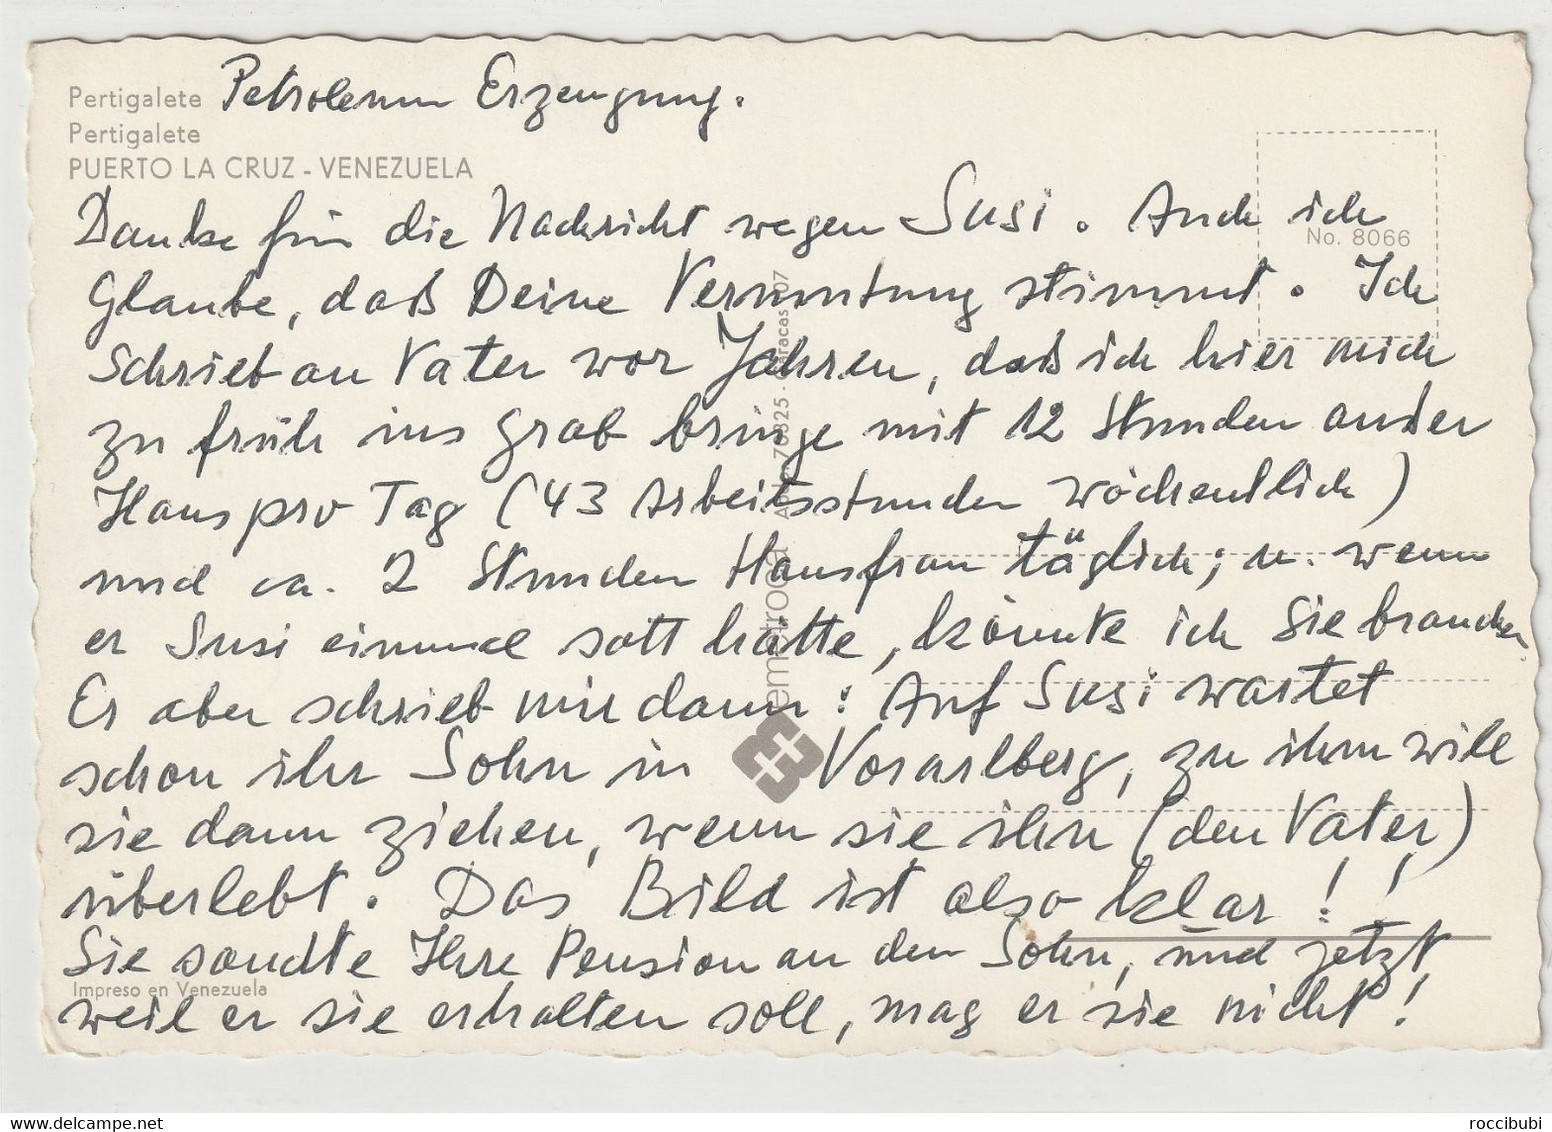 Pertigalete Petroleum Erzeugung.
Pertigalete
PUERTO LA CRUZ - VENEZUELA
Danke für die Nachricht wegen Susi. Auch ich
No. 8066
Glaube, daß Deine Vermutung stimmt. Ich
schrieb an Vater vor Jahren, daß ich hier mich
zu früh ins Grab bringe mit 12 Stunden außer
Haus pro Tag (43 Arbeitsstunden wöchentlich)
und ca. 2 Stunden Hausfrau täglich; u. wenn
er Susi einmal satt hätte, könnte ich Sie brauchen.
Er aber schrieb mir dann: Auf Susi wartet
schon ihr Sohn in Vorarlberg, zu ihm will
sie dann ziehen, wenn sie ihn (den Vater)
überlebt. Das Bild ist also klar!!
Sie sandte Ihre Pension an den Sohn, und jetzt
Impreso en Venezuela
weil er sie erhalten soll, mag er sie nicht!
roccibubi